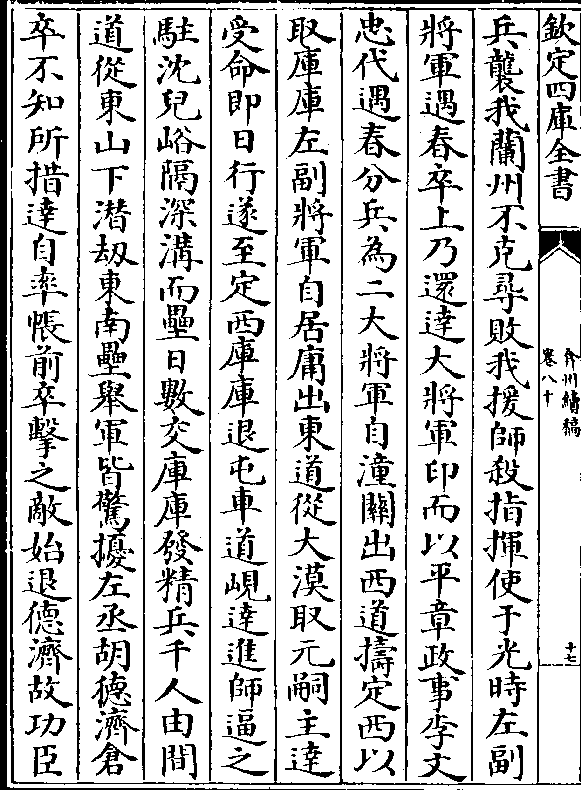 欽定四庫全書
弇州續稿
卷八十
十七
兵襲我蘭州不克尋敗我援師殺指揮使于光時左副
將軍遇春卒上乃還達大將軍印而以平章政事李文
忠代遇春分兵為二大將軍自潼關出西道擣定西以
取庫庫左副將軍自居庸出東道從大漠取元嗣主達
受命即日行遂至定西庫庫退屯車道峴達進師逼之
駐沈兒峪隔深溝而壘日數交庫庫發精兵千人由間
道從東山下潛刼東南壘舉軍皆驚擾左丞胡德濟倉
卒不知所措達自率帳前卒擊之敵始退德濟故功臣